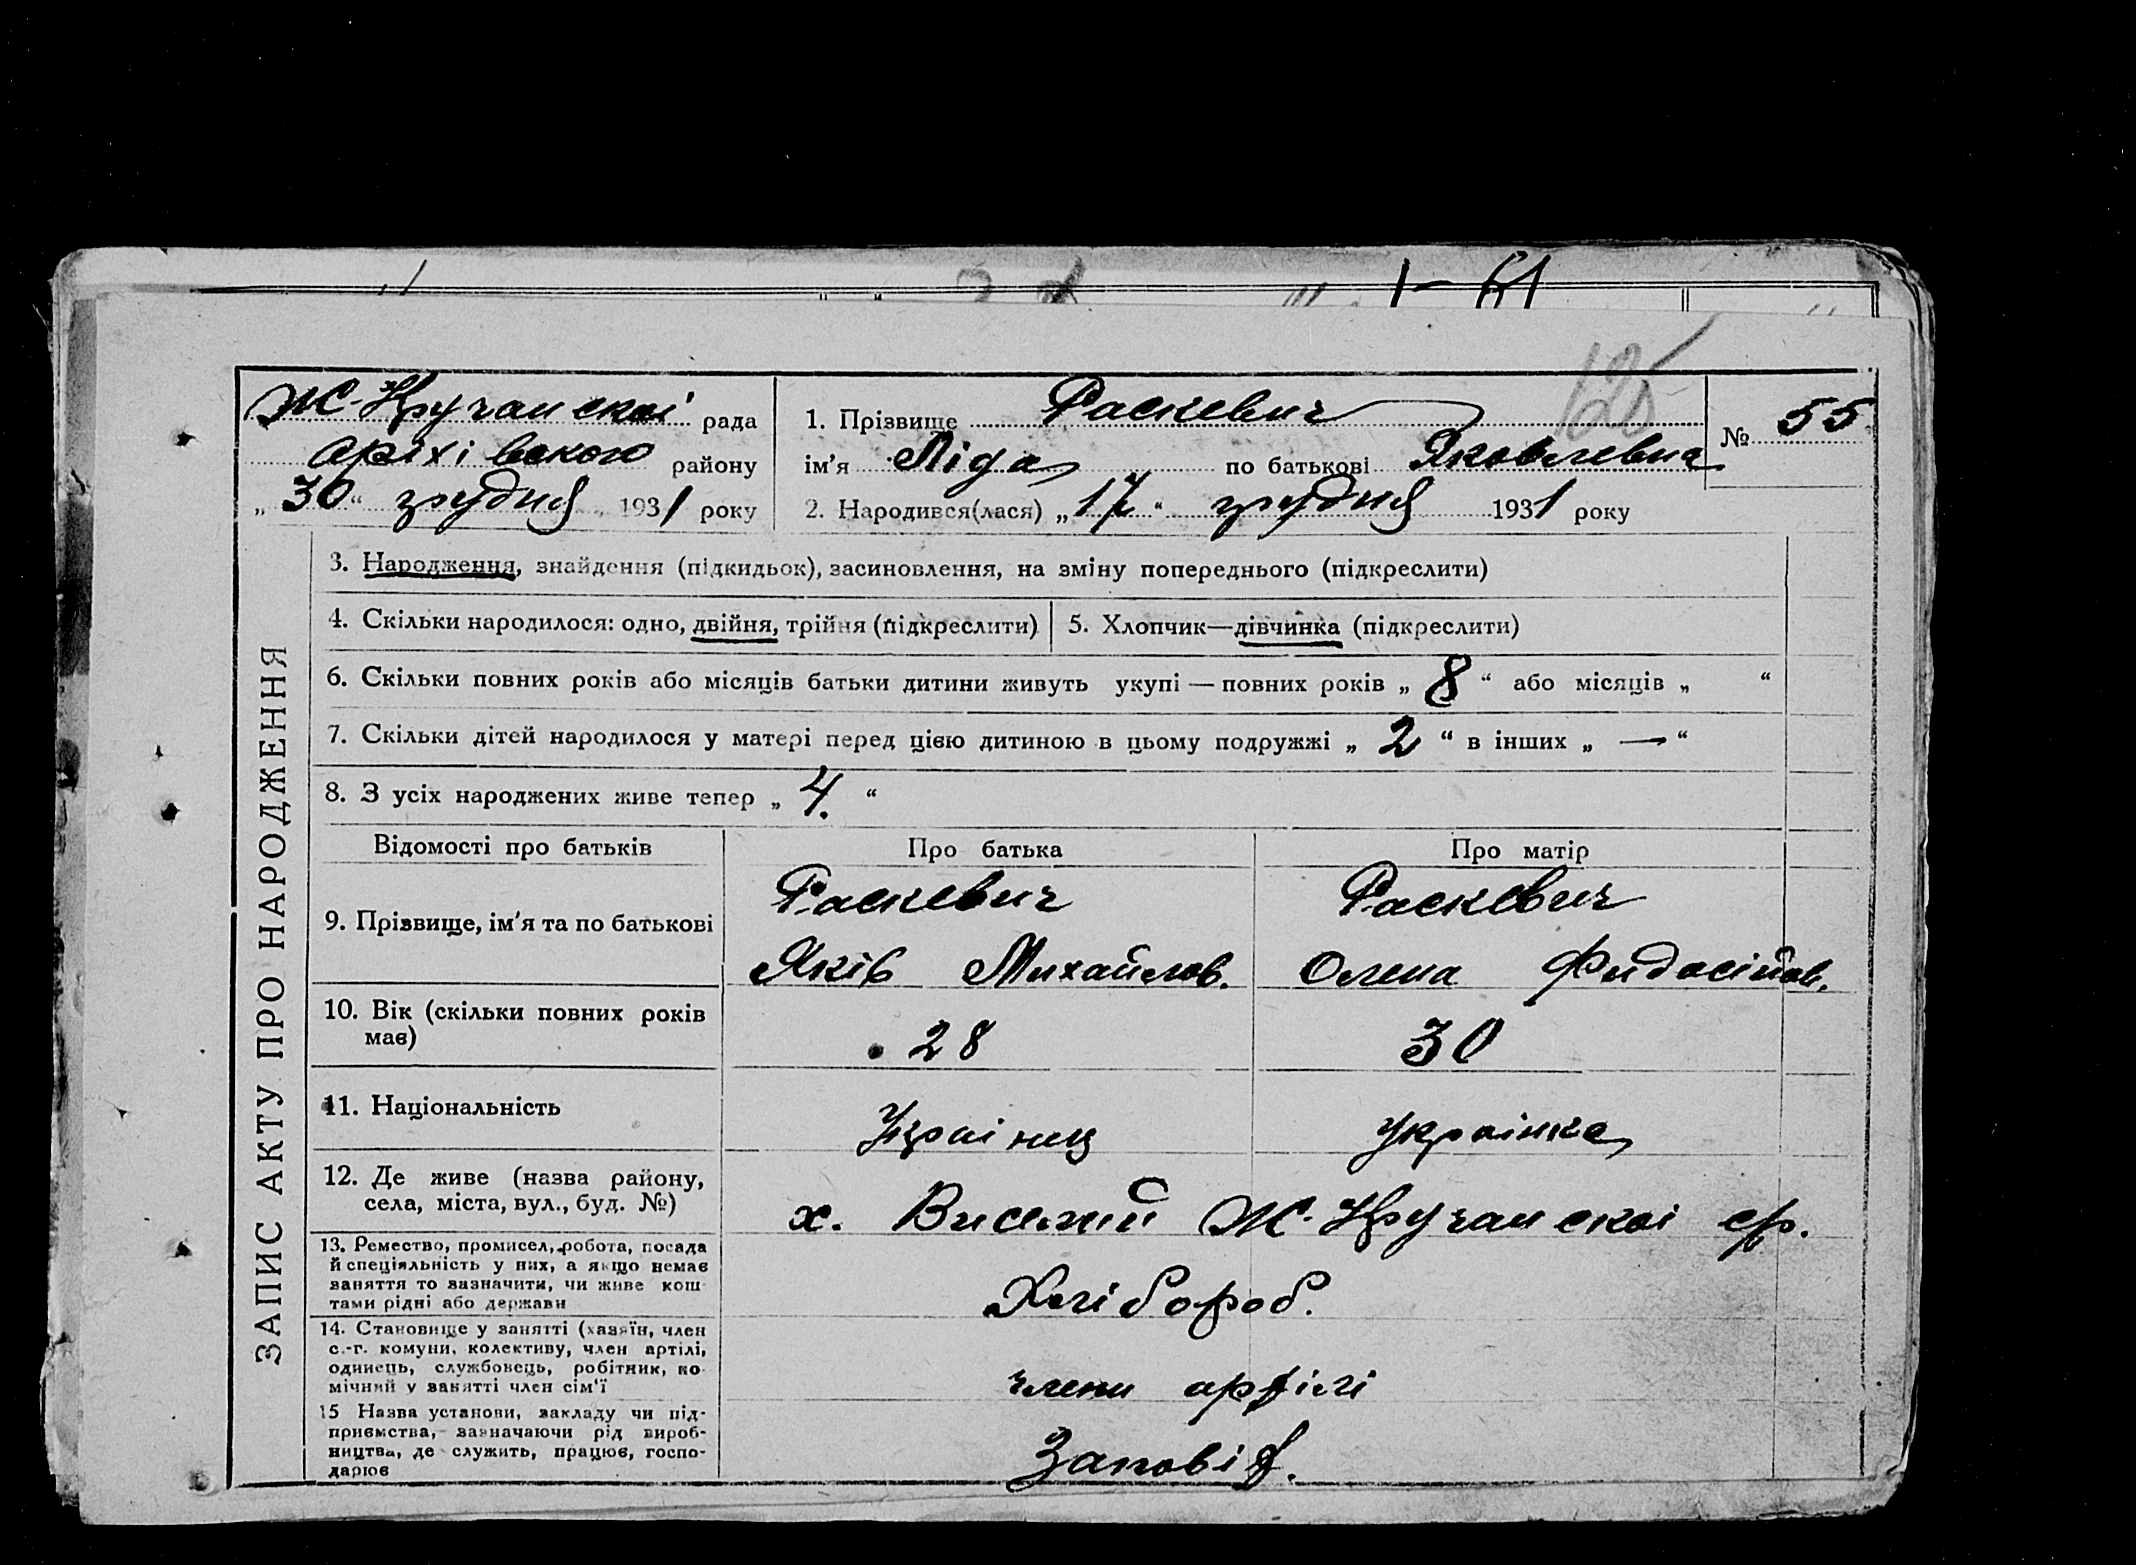 1- 61
125
Ж-Кручанскоі рада
Аріхівского району
„30“ грудня 1931 року
1. Прізвище Раскевич
ім'я Ліда по батькові Яковлевна
2. Народився(лася) „17“ грудня 1931 року
№ 55
ЗАПИС АКТУ ПРО НАРОДЖЕННЯ
3. Народження, знайдення (підкидьок), засиновлення, на зміну попереднього (підкреслити)
4. Скільки народилося: одно, двійня, трійня (підкреслити)
5. Хлопчик—дівчинка (підкреслити)
6. Скільки повних років або місяців батьки дитини живуть укупі — повних років „8“ або місяців „ “
7. Скільки дітей народилося у матері перед цією дитиною в цьому подружжі „2“ в інших „—“
8. З усіх народжених живе тепер „4.“
Відомості про батьків Про батька Про матір
9. Прізвище, ім'я та по батькові
Раскевич
Яків Михайлов.
Раскевич
Олена Фидосійов.
10. Вік (скільки повних років
має)
28
30
11. Національність
Украінец
украінка
12. Де живе (назва району,
села, міста, вул., буд. №)
х. Висилий Ж-Кручанскоі ср.
13. Ремество, промисел, робота, посада
й спеціяльність у них, а якщо немає
заняття то зазначити, чи живе кош-
тами рідні або держави
Хлібороб.
14. Становище у занятті (хазяїн, член
с.-г. комуни, колективу, член артілі,
одинець, службовець, робітник, по-
мічний у занятті член сім'ї
члени артілі
15 Назва установи, закладу чи під-
приємства, зазначаючи рід вироб-
ництва, де служить, працює, госпо-
дарює
Заповіт.